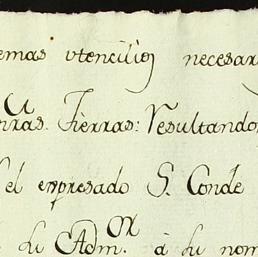 emas vtencilios necesar
nras. Tierras: Resultando
el expresado S. Conde
de su Adm.or â su nom